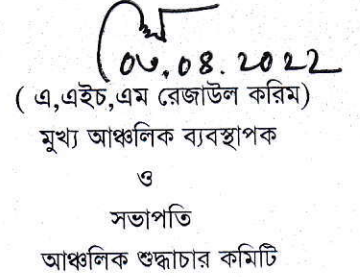 ০৩.০৪.২০২২
( এ,এইচ,এম রেজাউল করিম)
মুখ্য আঞ্চলিক ব্যবস্থাপক
ও
সভাপতি
আঞ্চলিক শুদ্ধাচার কমিটি